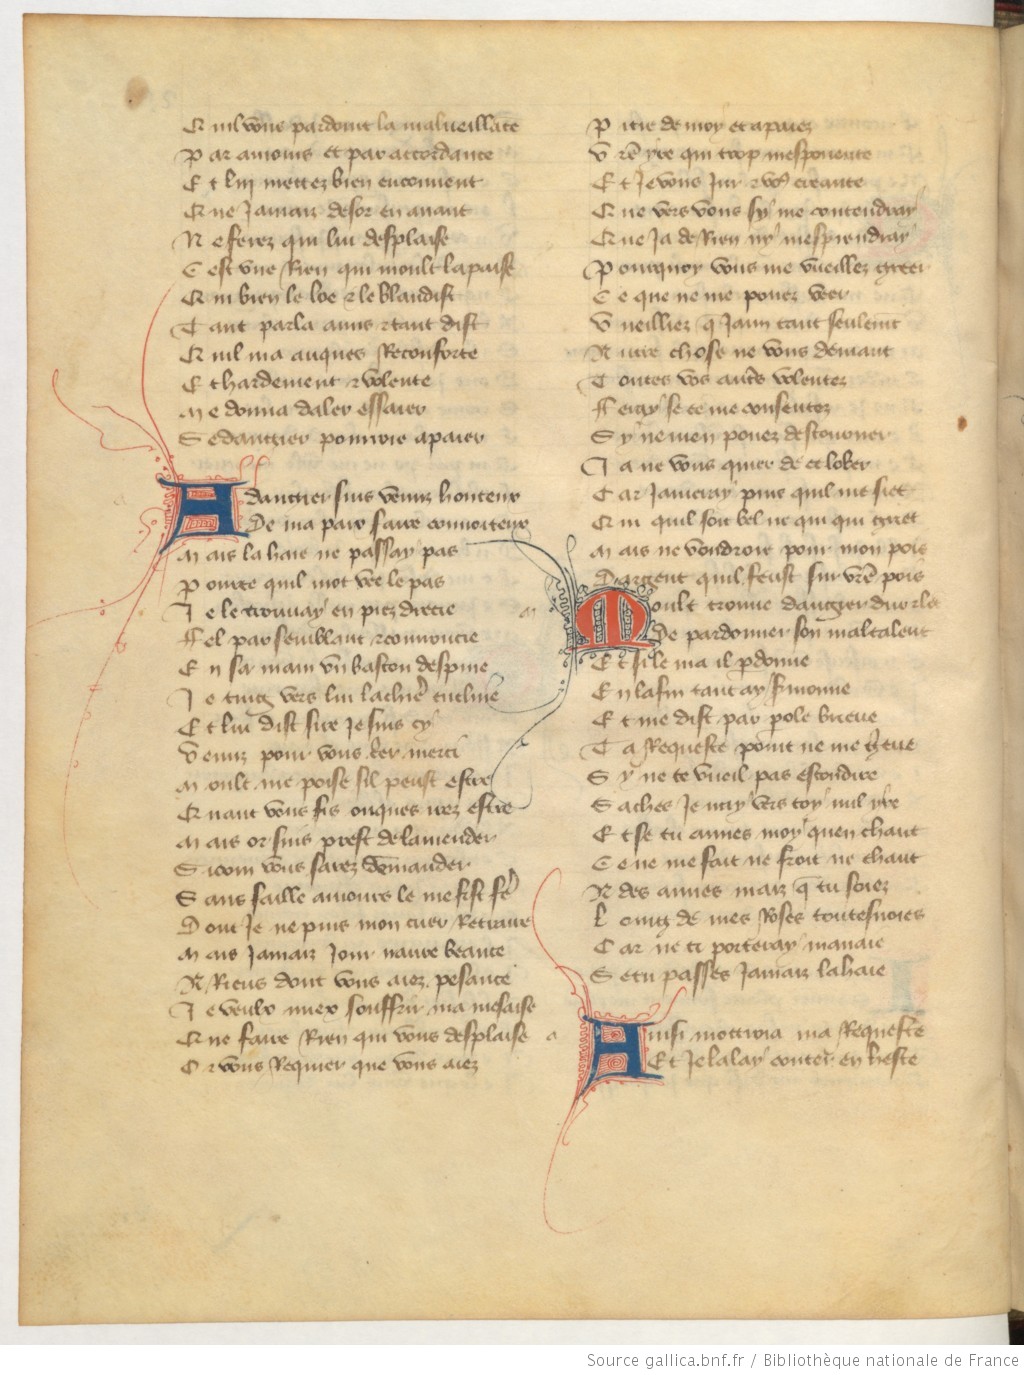 Quil vous pardoint la malueillāce
Par amours et par accordance
Et lui mettez bien enconuent
Que Jamaiz desor en auant
Ne ferez qui lui desplaise
Cest vne Rien qui moult lapaise
Qui bien le loe ⁊ le blandist
Tant parla amis ⁊ tant dist
Quil ma auques Reconforte
Et hardement ⁊ volente
Me donna daler essaier
Se dangier pourroie apaier
A dangier suis venuz honteux
De ma paix faire conuoiteux
Mais la haie ne passay pas
Pource quil mot vee le pas
Je le trouuay en piez drecie
Fel par semblant ⁊ courroucie
En sa main vn baston despine
Je ting vers lui la chiere encline
Et lui dist sire Je suis cy
Venuz pour vous crier merci
Moult me poise sil peust estre
Quant vous fis onques irez estre
Mais or suis prest de lamender
Si com vous sarez demander
Sans faille amours le me fist fē
Dont Je ne puis mon cuer Retraire
Mais Jamaiz Jour nauré beance
A Riens dont vous aiez pesance
Je veulx miex souffrir ma mesaise
Que faire Rien qui vous desplaise
Or vous Requier que vous aiez
Pitie de moy et apaiez
Vrē yre qui trop mespouente
Et Je vous Jur ⁊ vꝰ creante
Que vers vous sy me contendray
Que Ja de Rien ny mesprendray
Pourquoy vous me vueillez greer
Ce que ne me pouez veer
Vueilliez q̄ Jaim tant seulemt
Autre chose ne vous demant
Toutes vos autˢ volentez
Feray se ce me consentez
Sy ne men pouez destourner
Ja ne vous quier de ce lober
Car Jameray puis quil me siet
Cui quil soit bel ne qui qui griet
Mais ne vondroie pour mon pois
Dargent quil feust sur vrē pois
Moult trouue dangier dur ⁊ le
De pardonner son maltalent
Et si le ma il ꝑdonne
En la fin tant ay sermonne
Et me dist par pole brieue
Ta Requeste point ne me grieue
Sy ne te vueil pas escondire
Saches Je nay vers toy nul yre
Et se tu aimes moy quen chaut
Ce ne me fait ne froit ne chaut
Ades aimes maiz q̄ tu soiez
Loing de mes Roses toutesuoies
Car ne ti porteray manaie
Se tu passes Jamaiz la haie
Ainsi mottroia ma Requeste
Et Je lalay conter en heste
Source gallica.bnf.fr / Bibliothèque nationale de France